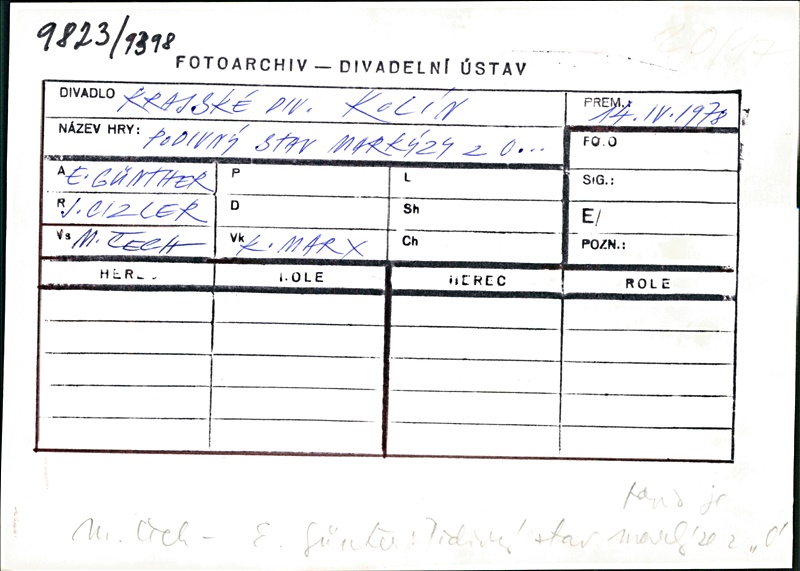 9823/9398
FOTOARCHIV — DIVADELNÍ ÚSTAV
DIVADLO KRAJSKÉ DIV. KOLÍN
PREM.: 14.IV.1978
NÁZEV HRY: PODIVNÝ STAV MARKÝZY Z O...
FO.O
A E. GÜNTHER P L SIG.:
R J. CIZLER D Sh E/
Vs M. ČECH Vk K. MARX Ch POZN.:
HEREC ROLE HEREC ROLE
je
M. Čech – E. Günter: Podivný stav markýze z „O"